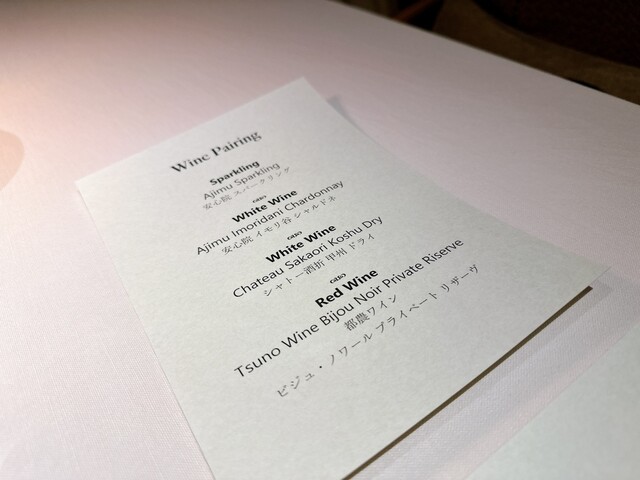 Wine Pairing
Sparkling
Ajimu Sparkling
安心院 スパークリング
White Wine
Ajimu Imoridani Chardonnay
安心院 イモリ谷 シャルドネ
White Wine
Chateau Sakaori Koshu Dry
シャトー酒折 甲州 ドライ
Red Wine
Tsuno Wine Bijou Noir Private Reserve
都農ワイン
ビジュ・ノワール プライベート リザーヴ